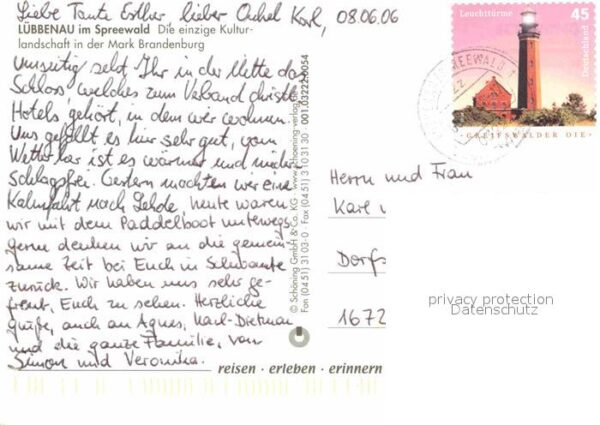 Liebe Tante Esther, lieber Onkel Karl, 08.06.06
LÜBBENAU im Spreewald Die einzige Kultur-
landschaft in der Mark Brandenburg
Umseitig seht Ihr in der Mitte das
Schloss, welches zum Verband christl.
Hotels gehört, in dem wir wohnen.
Uns gefällt es hier sehr gut, vom
Wetter her ist es wärmer und nieder-
schlagsfrei. Gestern machten wir eine
Kahnfahrt nach Lehde, heute waren
wir mit dem Paddelboot unterwegs.
gerne denken wir an die gemein-
same Zeit bei Euch in Schwante
zurück. Wir haben uns sehr ge-
freut, Euch zu sehen. Herzliche
Grüße, auch an Agnes, Karl-Dietmar
und die ganze Familie, von
Simon und Veronika.
© Schöning GmbH & Co. KG · www.schoening-verlag.de
Fon (04 51) 31 03-0 · Fax (04 51) 3 10 31 30 001.03222.0054
reisen · erleben · erinnern
Leuchttürme 45
Deutschland
GREIFSWALDER OIE
Herrn und Frau
Karl
Dorfs
1672
privacy protection
Datenschutz